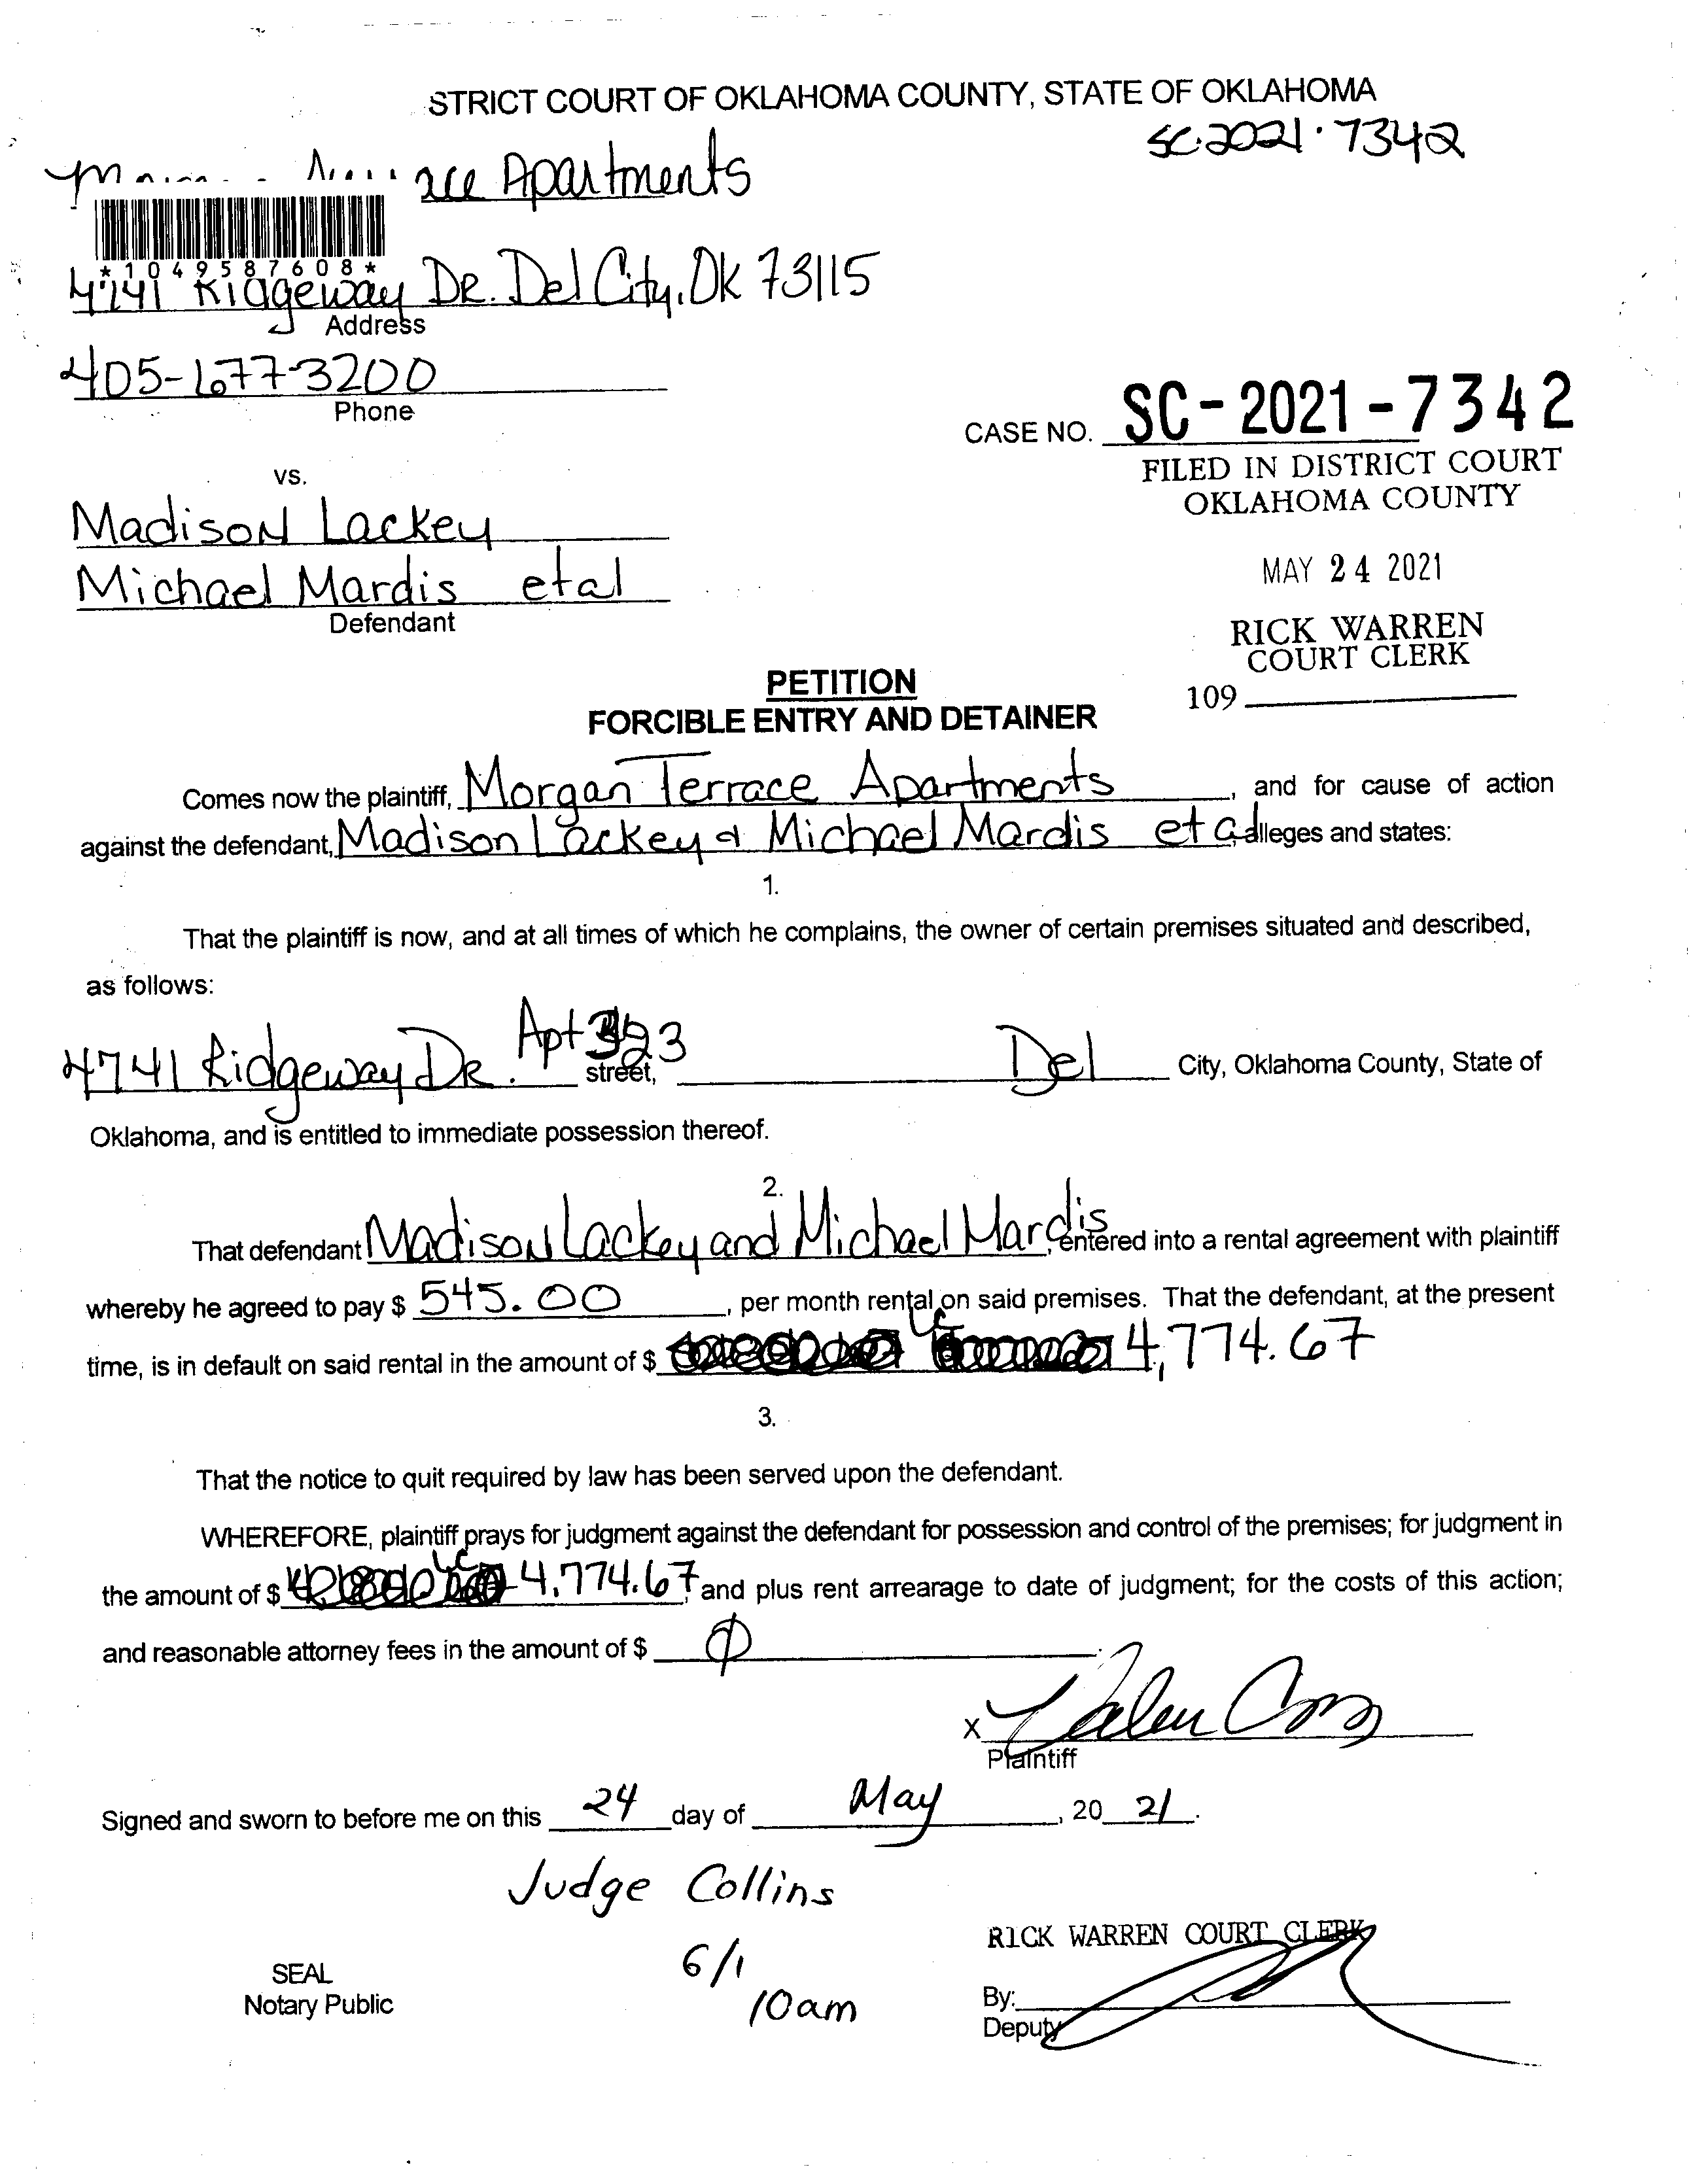 STRICT COURT OF OKLAHOMA COUNTY, STATE OF OKLAHOMA
SC.2021.7342
Apartments
*1049587608*
4741 Ridgeway Dr. Del City, OK 73115
Address
405-677-3200
Phone
CASE NO. SC-2021-7342
FILED IN DISTRICT COURT
OKLAHOMA COUNTY
vs.
Madison Lackey
Michael Mardis etal
Defendant
MAY 24 2021
RICK WARREN
COURT CLERK
109
PETITION
FORCIBLE ENTRY AND DETAINER
Comes now the plaintiff, Morgan Terrace Apartments, and for cause of action
against the defendant, Madison Lackey & Michael Mardis et al alleges and states:
1.
That the plaintiff is now, and at all times of which he complains, the owner of certain premises situated and described,
as follows:
4741 Ridgeway Dr. Apt street, Del City, Oklahoma County, State of
Oklahoma, and is entitled to immediate possession thereof.
2.
That defendant Madison Lackey and Michael Mardis, entered into a rental agreement with plaintiff
whereby he agreed to pay $ 545.00, per month rental on said premises. That the defendant, at the present
time, is in default on said rental in the amount of $ 4,774.67
3.
That the notice to quit required by law has been served upon the defendant.
WHEREFORE, plaintiff prays for judgment against the defendant for possession and control of the premises; for judgment in
the amount of $ 4,774.67, and plus rent arrearage to date of judgment; for the costs of this action;
and reasonable attorney fees in the amount of $ Ø.
X
Plaintiff
Signed and sworn to before me on this 24 day of May, 20 21.
Judge Collins
6/1
10am
SEAL
Notary Public
RICK WARREN COURT CLERK
By:
Deputy